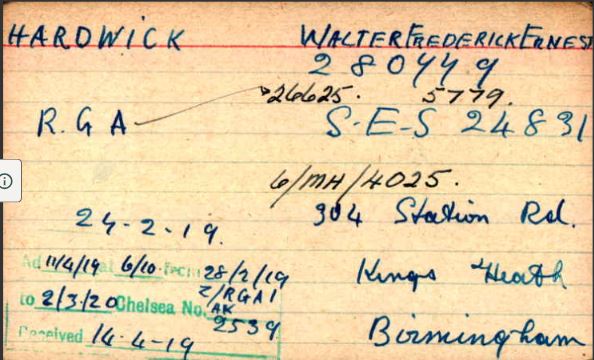 HARDWICK WALTER FREDERICK ERNEST
280449
26625. 5779.
R.G A S-E-S 24831
6/MH/4025.
24-2-19. 304 Station Rd.
Ad 11/4/19 at 6/10 From 28/2/19 Kings Heath
Z/RGA1
to 2/3/20 Chelsea No. AK
2539 Birmingham
Received 14-4-19